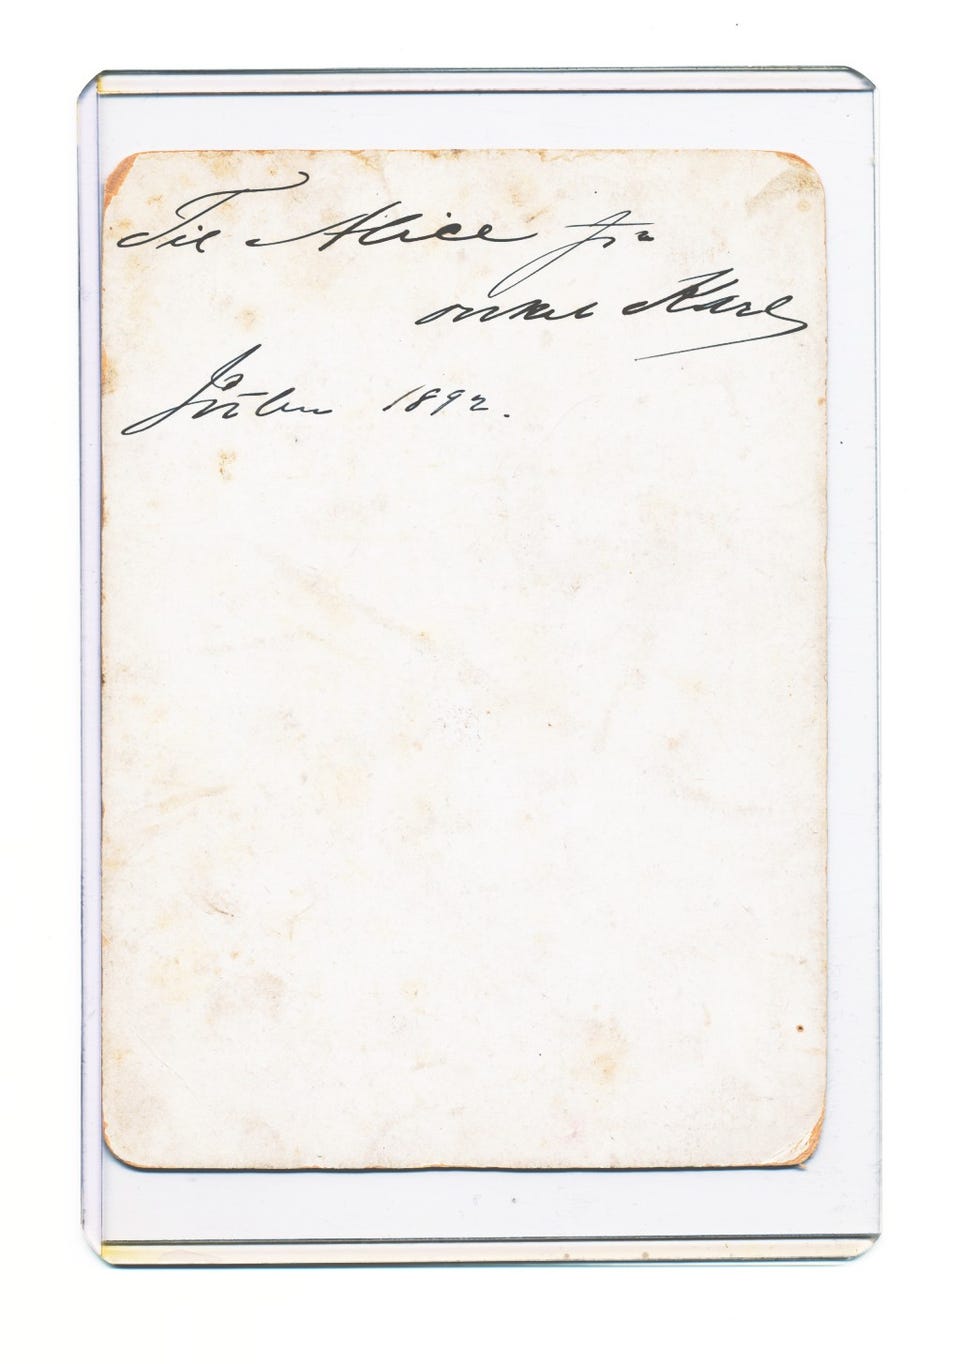 Til Alice fra
onkel Karl
Julen 1892.